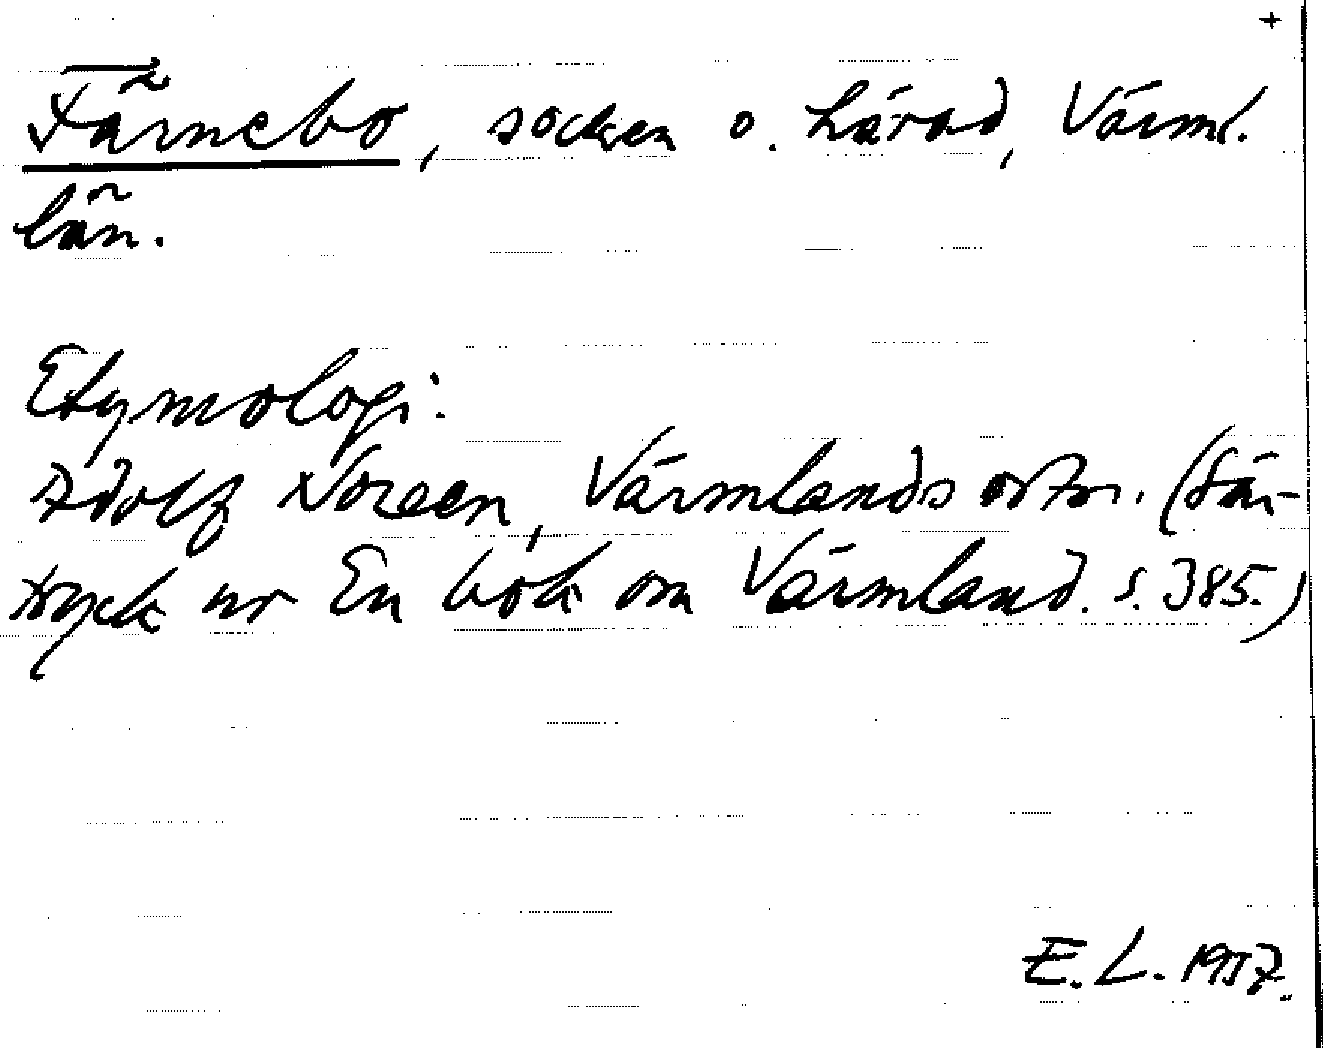 +
Färnebo, socken o. härad, Värml.
län.
Etymologi:
Adolf Noreen, Värmlands ortn. (Sär-
tryck ur En bok om Värmland. s. 385.)
E. L. 1957.